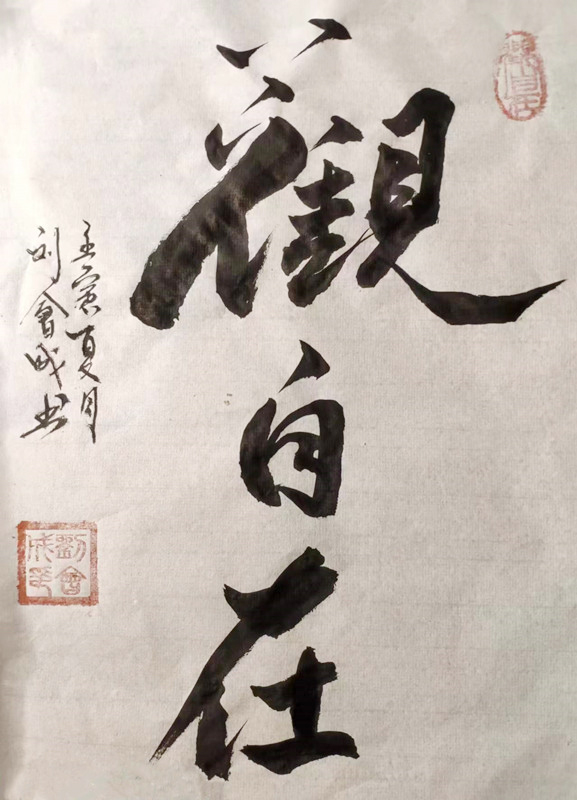 觀自在
壬寅夏月
刘會成书
劉會成印